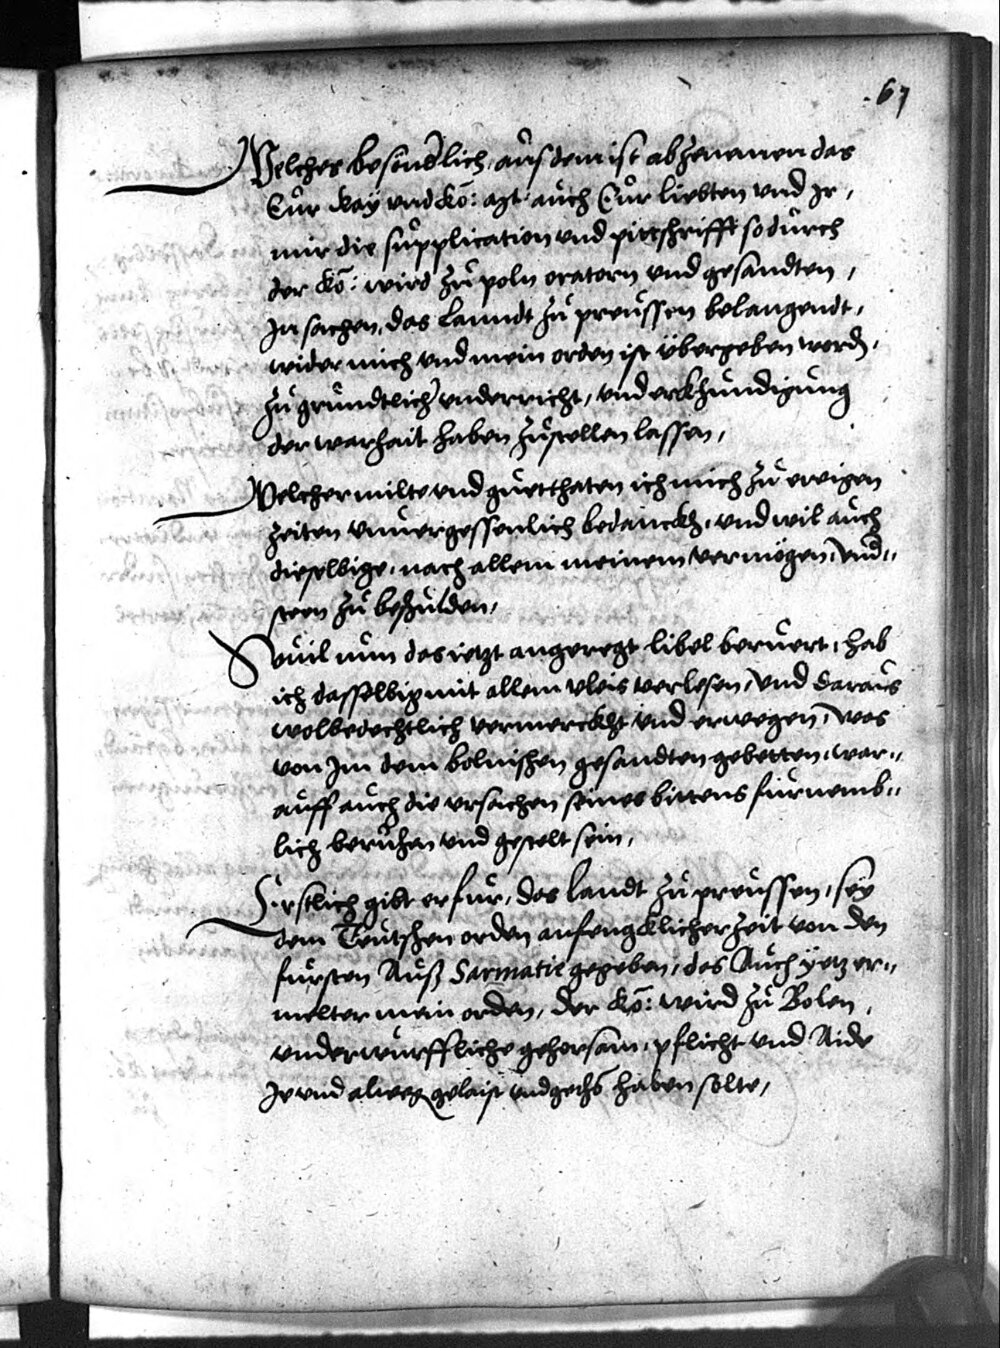 67
Welches besunderlich, aus dem ist abzenemen das
Eur Kay vnd Ko: Mgt auch Eur liebten vnd Ir,
mir die supplication vnd pittschrifft so durch
der Ko: wird zu poln oratorn vnd gesandten,
In sachen, das Lanndt zu preussen belangendt,
wider mich vnd mein orden ist übergeben word,
zu gruntlicher vnderricht, vnd erkhundigung
der warhait haben zustellen lassen,
Welcher milte vnd guetthaten ich mich zu ewigen
zeiten vnuergessenlich bedanckh, vnd wil auch
dieselbige, nach allem meinem vermögen, vnd
zu beschulden,
Souil nun das ietzt angeregt libel beruert, hab
ich dasselbig mit allem vleis verlesen, vnd daraus
wolbedechtlich vermerckht vnd erwegen, was
von Im dem bolnischen gesandten gebetten, war-
auff auch die vrsachen seines bittens furnemb-
lich beruhen vnd gestelt sein,
Erstlich gibt er fur, das landt zu preussen, sey
dem Teutschen orden anfengcklicher zeit von den
fursten Auß Sarmatie gegeben, das Auch yetz er-
melter mein orden, der Ko: wird zu Bolen,
vnderwurffliche gehorsam, pflicht vnd Aide
Ye vnd alweg gelaist vnd haben solte,